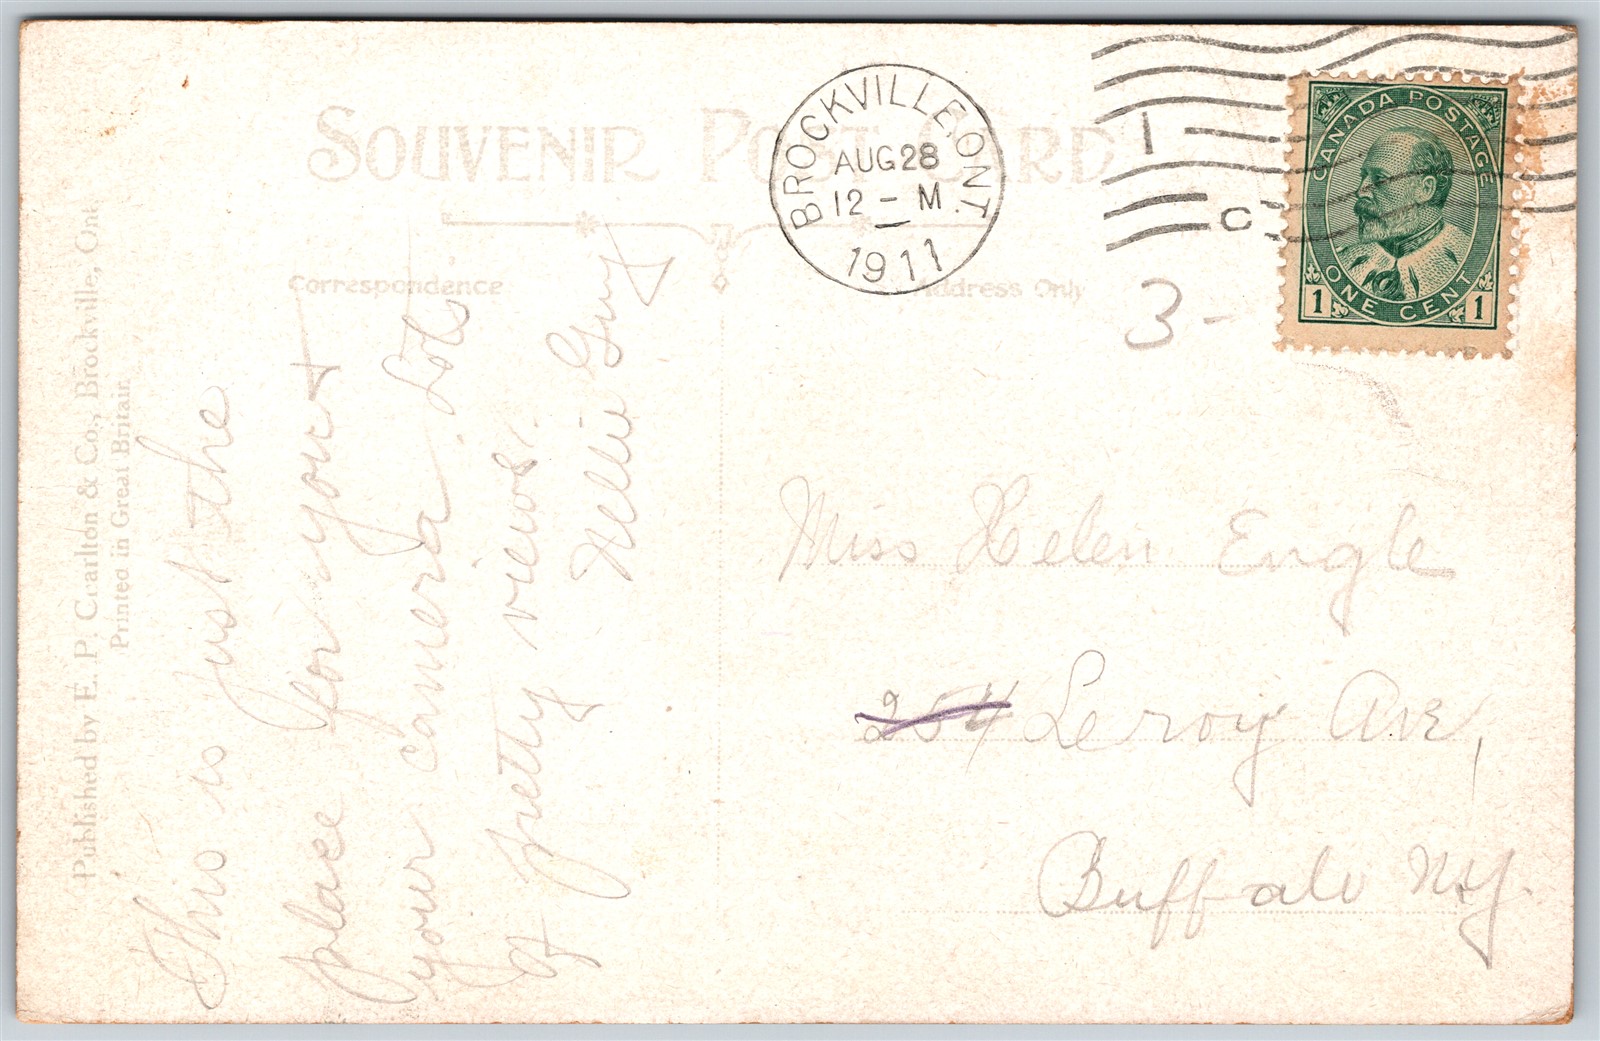 SOUVENIR POST CARD
Correspondence
Address Only
BROCKVILLE, ONT.
AUG 28
12 - M
1911
1
C
CANADA POSTAGE
ONE CENT
1 1
3-
Published by E. P. Cearlton & Co., Brockville, Ont
Printed in Great Britain
This is just the
place for you +
your camera. Lots
of pretty views.
Nellie
Miss Helen Engle
254 Leroy Ave,
Buffalo N.Y.